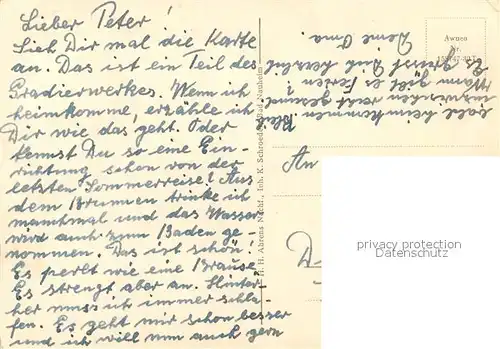 Lieber Peter!
Sieh Dir mal die Karte
an. Das ist ein Teil des
Gradierwerkes. Wenn ich
heimkomme, erzähle ich
Dir wie das geht. Oder
kennst Du so eine Ein-
richtung schon von der
letzten Sommerreise? Aus
dem Brunnen trinke ich
manchmal und das Wasser
wird auch zum Baden ge-
nommen. Das ist schön!
Es perlt wie eine Brause.
Es strengt aber an. Hinter-
her muss ich immer schla-
fen. Es geht mir schon besser
und ich will nun auch gern
bald heimkommen. Bleib
inzwischen recht gesund!
Wann gibt es Ferien?
Es grüsst Dich herzlichst
Deine Oma.
H. H. Ahrens Nachf., Inh. K. Schroeder, Bad Nauheim
Awuco
An
D-
privacy protection
Datenschutz